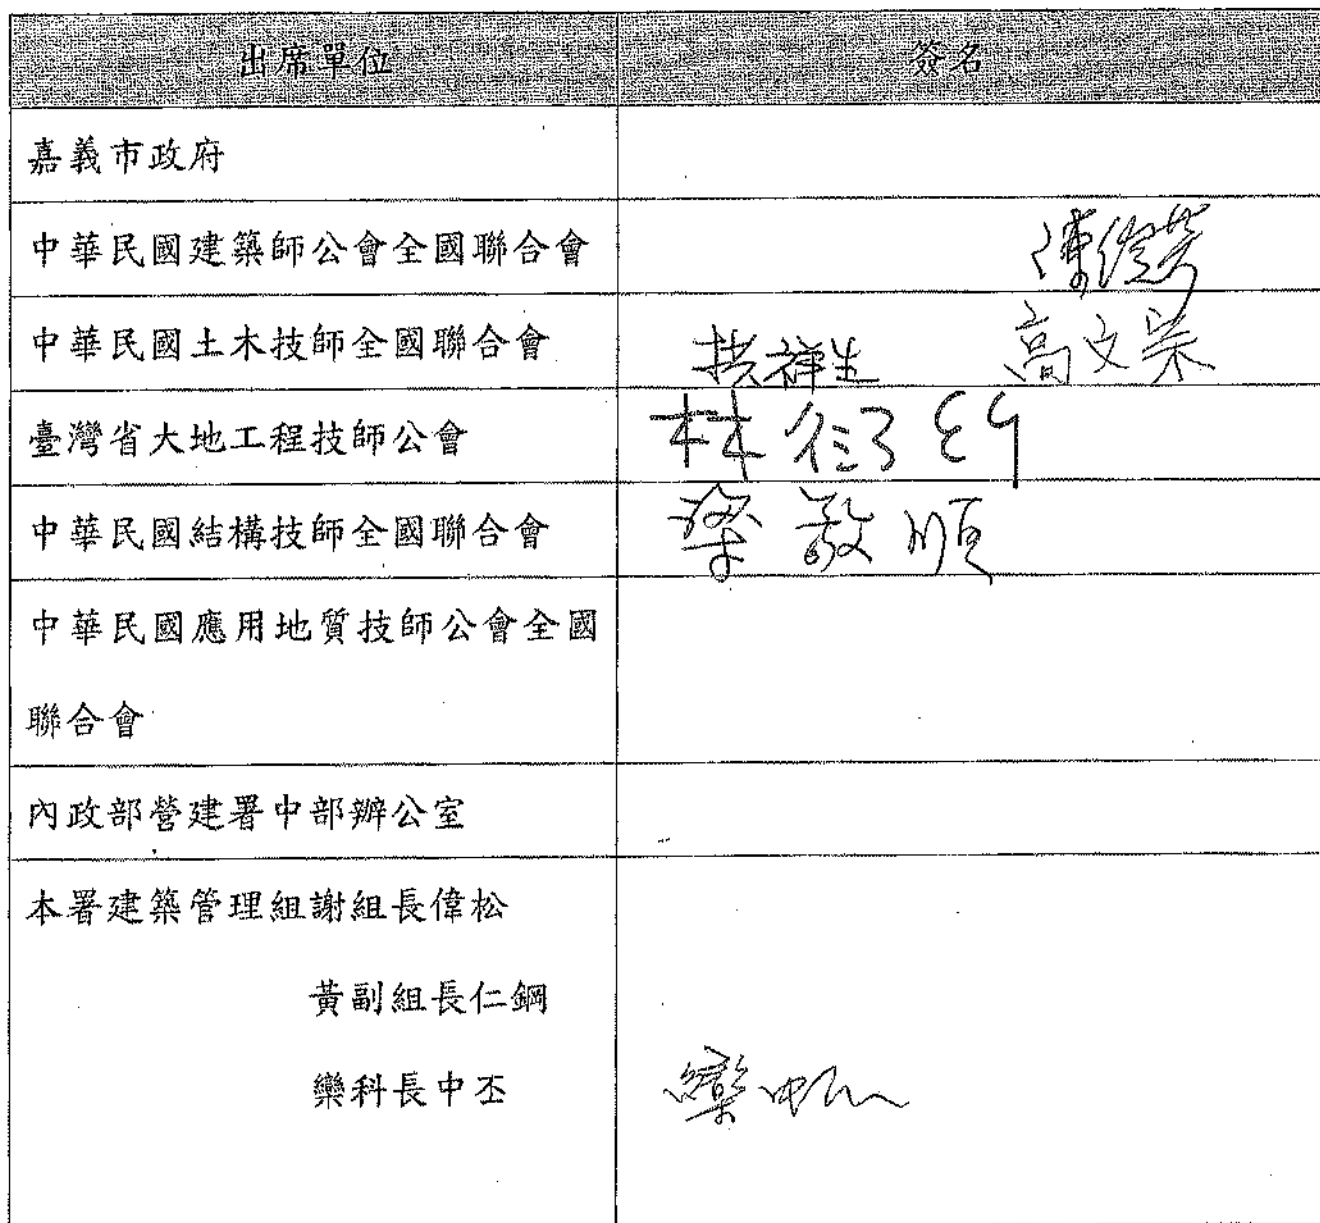 出席單位 簽名
嘉義市政府
中華民國建築師公會全國聯合會
中華民國土木技師全國聯合會 拱祥生 高文宗
臺灣省大地工程技師公會 林衍
中華民國結構技師全國聯合會 梁敬順
中華民國應用地質技師公會全國
聯合會
內政部營建署中部辦公室
本署建築管理組謝組長偉松
黃副組長仁鋼
欒科長中丕 欒中丕